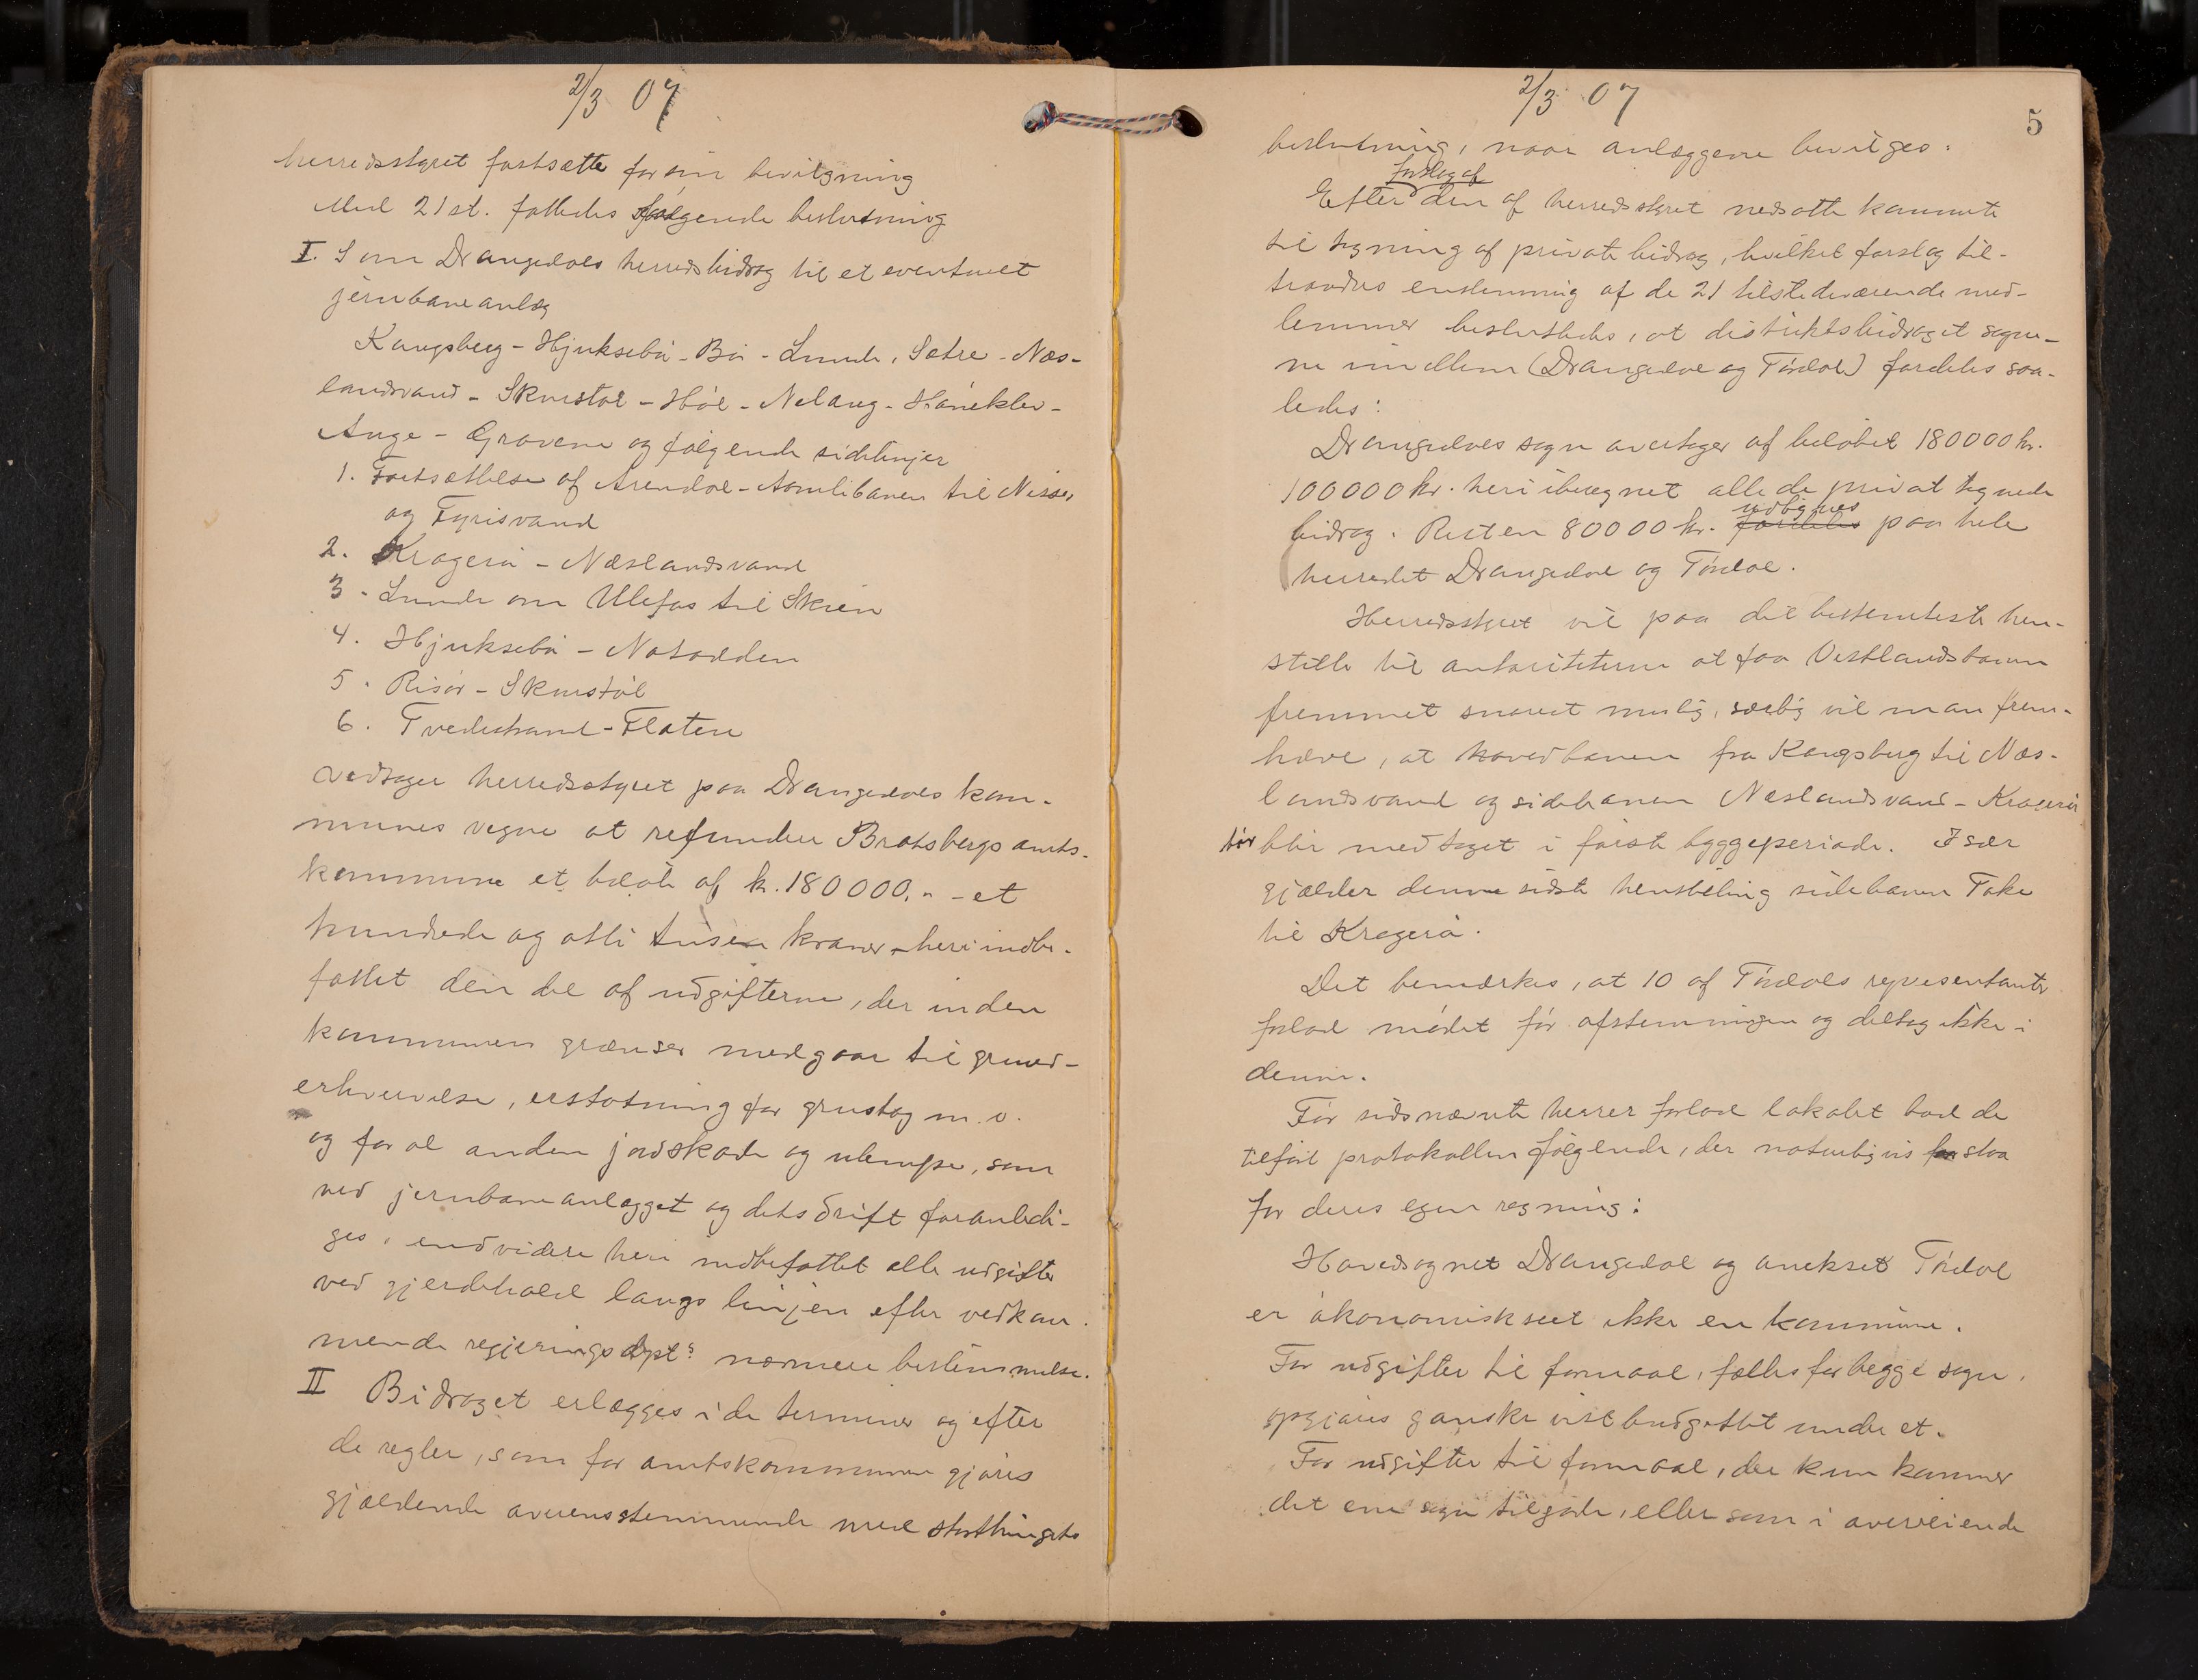 2/3 07
herredsstyret fastsætte for sin bevilgning
Med 21 st. fattedes følgende beslutning
I. Som Drangedals herredsbidrag til et eventuelt
jernbaneanlæg
Kongsberg - Hjuksebø - Bø - Lunde, Sætre - Næs-
landsvand - Skurstøl - Høl - Nelaug - Hånekler -
Auge - Grovene og følgende sidelinjer
1. Fortsættelse af Arendal - Aamlibanen til Nisser
og Fyrisvand
2. Kragerø - Næslandsvand
3. Lunde om Ulefos til Skien
4. Hjuksebø - Notodden
5. Risør - Skurstøl
6. Tvedestrand - Flaten
vedtager herredsstyret paa Drangedals kom-
munes vegne at refundere Bratsbergs amts-
kommune et beløb af kr. 180000,- - et
hundrede og otti tusen kroner - heri indbe-
fattet den del af udgifterne, der inden
kommunens grænser medgaar til grund-
erhvervelse, erstatning for grustag m.v.
og for al anden jordskade og ulempe, som
ved jernbaneanlægget og dets drift foranledi-
ges, endvidere heri indbefattet alle udgifter
ved gjerdehold langs linjen efter vedkom-
mende regjeringsdpts nærmere bestemmelse.
II Bidraget erlægges i de terminer og efter
de regler, som for amtskommunen gjøres
gjældende overensstemmende med storthingets
2/3 07
5
beslutning, naar anlæggene bevilges.
forslag af
Efter den af herredsstyret nedsatte kommite
til tegning af private bidrag, hvilket forslag til-
traadtes enstemmig af de 21 tilstedeværende med-
lemmer besluttedes, at distriktsbidraget sogne-
ne imellem (Drangedal og Tørdal) fordeles saa-
ledes:
Drangedals sogn overtager af beløbet 180000 kr.
100000 kr. heri iberegnet alle de privat tegnede
udlignes
bidrag. Resten 80000 kr. fordeles paa hele
herredet Drangedal og Tørdal.
Herredsstyret vil paa det bestemteste hen-
stille til autoriteterne at faa Vestlandsbanen
fremmet snarest mulig, særlig vil man frem-
hæve, at hovedbanen fra Kongsberg til Næs-
landsvand og sidebanen Næslandsvand - Kragerø
bør blir medtaget i første byggeperiode. Især
gjælder denne sidste henstilling sidebanen Toke
til Kragerø.
Det bemærkes, at 10 af Tørdals representanter
forlod mødet før afstemningen og deltog ikke i
denne.
Før sidsnævnte herrer forlod lokalet bad de
tilført protokollen følgende, der naturligvis faar staa
for deres egen regning:
Hovedsognet Drangedal og anekset Tørdal
er økonomisk seet ikke en kommune.
For udgifter til formaal, fælles for begge sogn,
opgjøres ganske vist budgettet under et.
For udgifter til formaal, der kun kommer
det ene sogn tilgode, eller som i overveiende